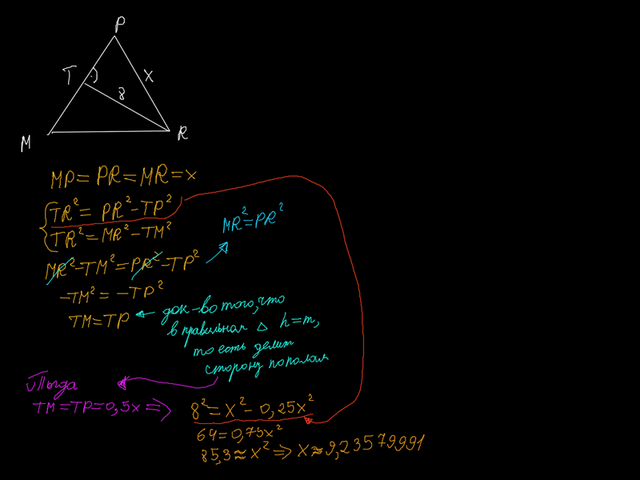 P
T
X
8
M
R
MP = PR = MR = x
TR² = PR² - TP²
TR² = MR² - TM²
MR² = PR²
MR² - TM² = PR² - TP²
-TM² = -TP²
TM = TP
док-во того, что
в правильная △ h=m,
то есть делит
сторону пополам
Тогда
TM = TP = 0,5x =>
8² = X² - 0,25X²
64 = 0,75x²
85,3 ≈ x² => X ≈ 9,23579991